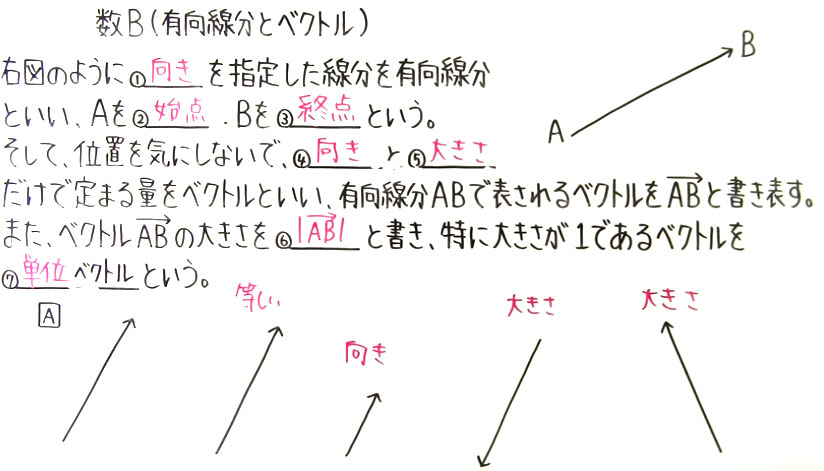 数B(有向線分とベクトル)
B
右図のように①向きを指定した線分を有向線分
といい、Aを②始点、Bを③終点という。
A
そして、位置を気にしないで、④向きと⑤大きさ
だけで定まる量をベクトルといい、有向線分ABで表されるベクトルを$\overrightarrow{AB}$と書き表す。
また、ベクトル$\overrightarrow{AB}$の大きさを⑥$|\overrightarrow{AB}|$と書き、特に大きさが1であるベクトルを
⑦単位ベクトルという。
A
等しい
向き
大きさ
大きさ